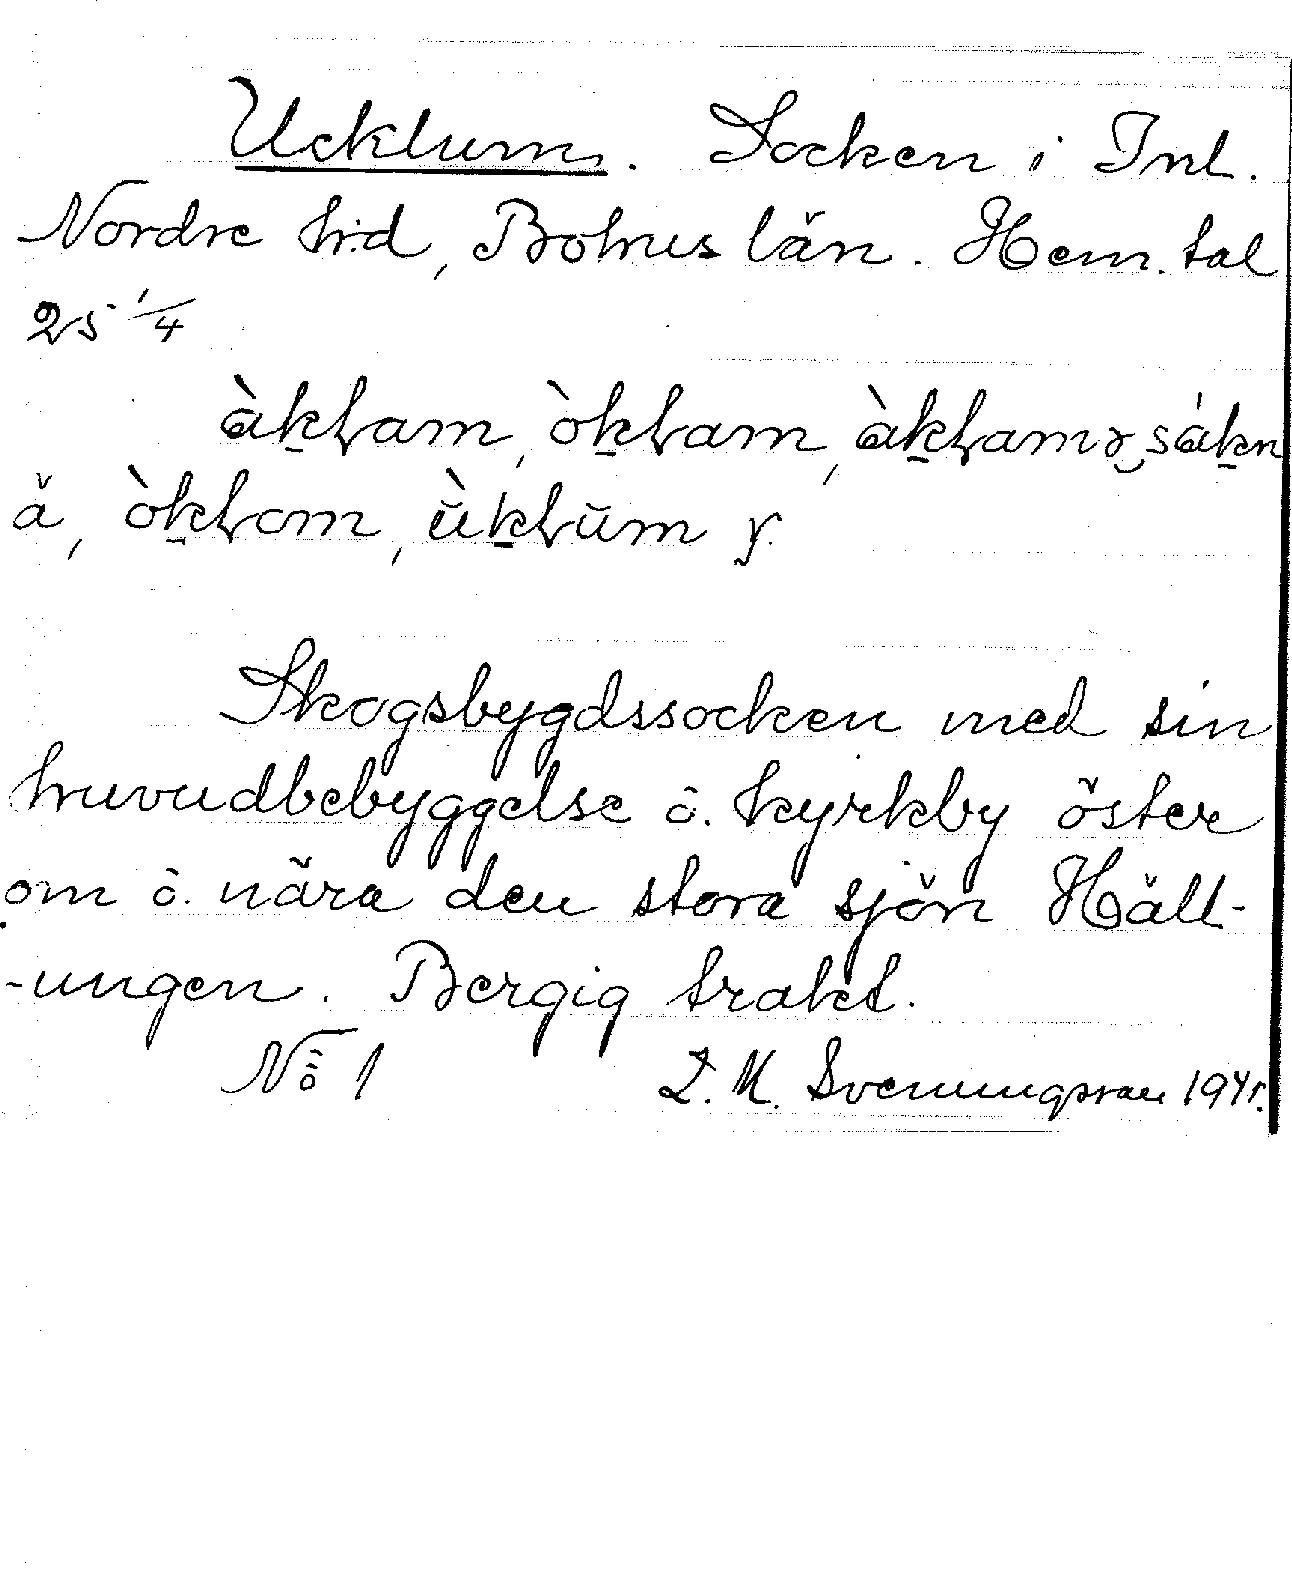 Ucklum. Socken i Inl.
Nordre h:d, Bohus län. Hem. tal
25 1/4
àkłam, òkłam, àkłamɤ sákn
ä, òkłom, ùkłŭm y.
Skogsbygdssocken med sin
huvudbebyggelse o. kyrkby öster
om o. nära den stora sjön Häll-
-ungen. Bergig trakt.
No 1 L. M. Svenungsson 1941.